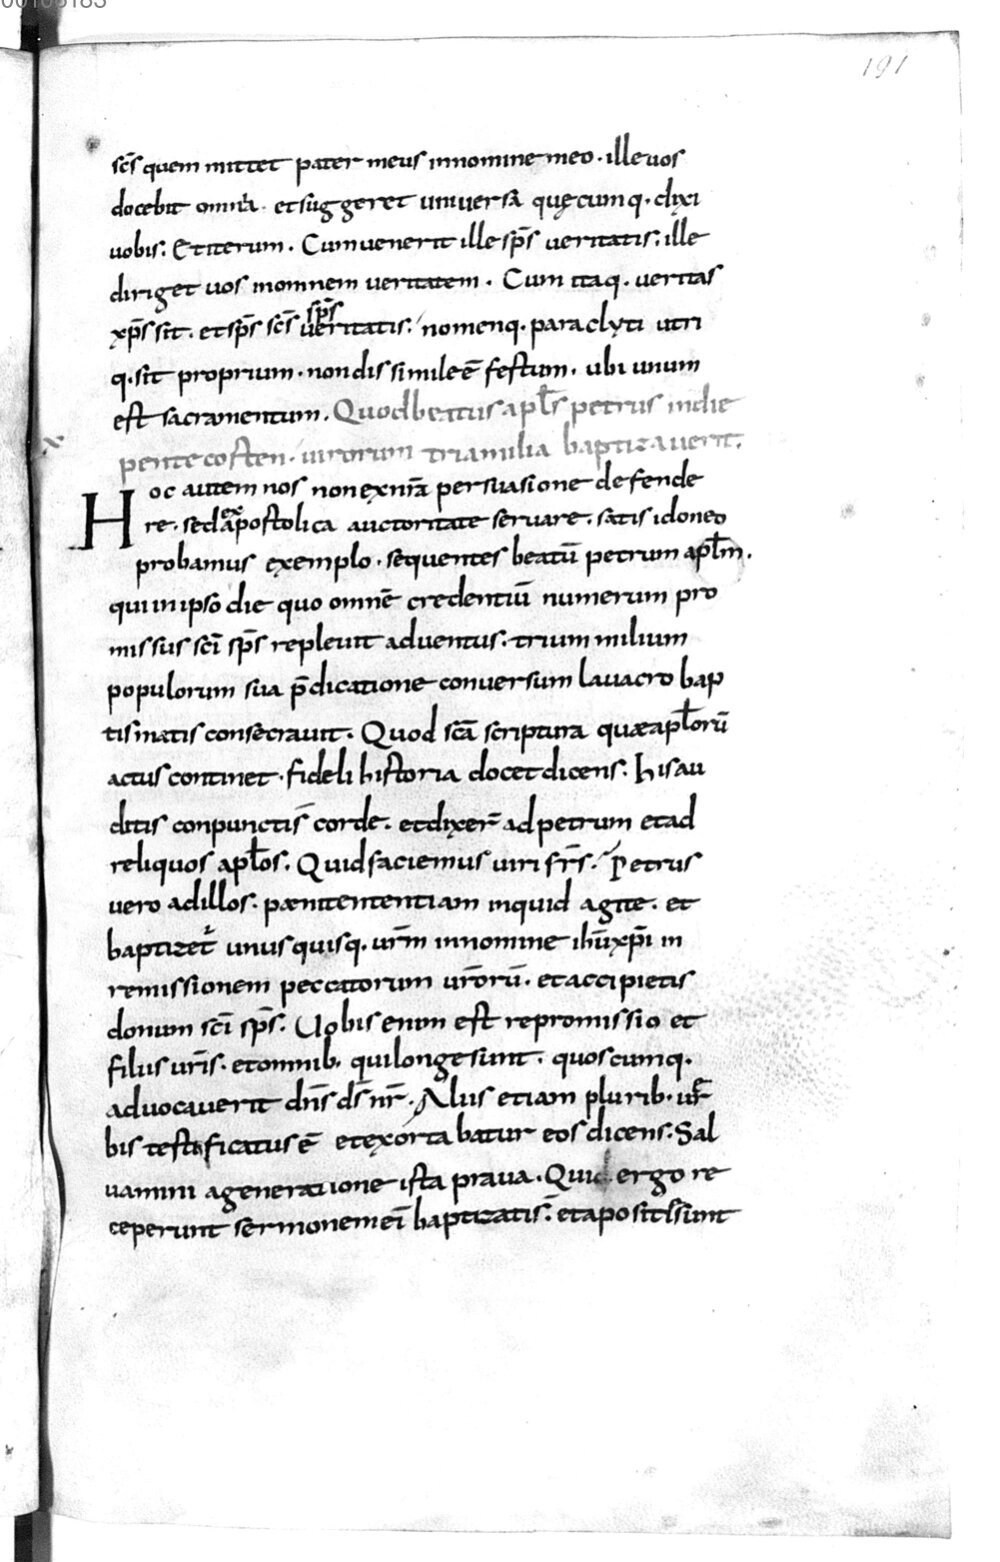 191
sc̄s quem mittet pater meus innomine meo · ille uos
docebit omnia · et suggeret uniuersa quęcumq· dixi
uobis · Et iterum · Cum uenerit ille sp̄s ueritatis · ille
diriget uos inomnem ueritatem · Cum itaq· ueritas
sp̄s
xp̄s sit · et sp̄s sc̄s ueritatis · nomenq· paraclyti utri
q· sit proprium · non dissimile ē festum · ubi unum
est sacramentum · Quod beatus apl̄s petrus indie
pentecosten · uirorum triamilia baptizauerit ·
Hoc autem nos non ex nr̄a persuasione defende
re · sed ex apostolica auctoritate seruare · satis idoneo
probamus exemplo · sequentes beatū petrum apl̄m ·
qui inipso die quo omnē credentiū numerum pro
missus sc̄i sp̄s repleuit aduentus · trium milium
populorum sua p̄dicatione conuersum lauacro bap
tismatis consecrauit · Quod sc̄a scriptura quae apl̄orū
actus continet · fideli historia docet dicens · Hisau
ditis conpuncti s̄ corde · et dixer̄ ad petrum et ad
reliquos apl̄os · Quid faciemus uiri fr̄s · Petrus
uero ad illos · paenitentiam inquid agite · et
baptizet̄ unusquisq· ur̄m innomine ih̄u xp̄i in
remissionem peccatorum ur̄orū · et accipietis
donum sc̄i sp̄s · Uobis enim est repromissio et
filiis ur̄is · et omnib· qui longe sunt · quoscumq·
aduocauerit dn̄s ds̄ nr̄ · Aliis etiam plurib· uer
bis testificatus ē et exortabatur eos dicens · Sal
uamini ageneratione ista praua · Qui ergo re
ceperunt sermonem ei baptizati s̄ · et apositi sunt